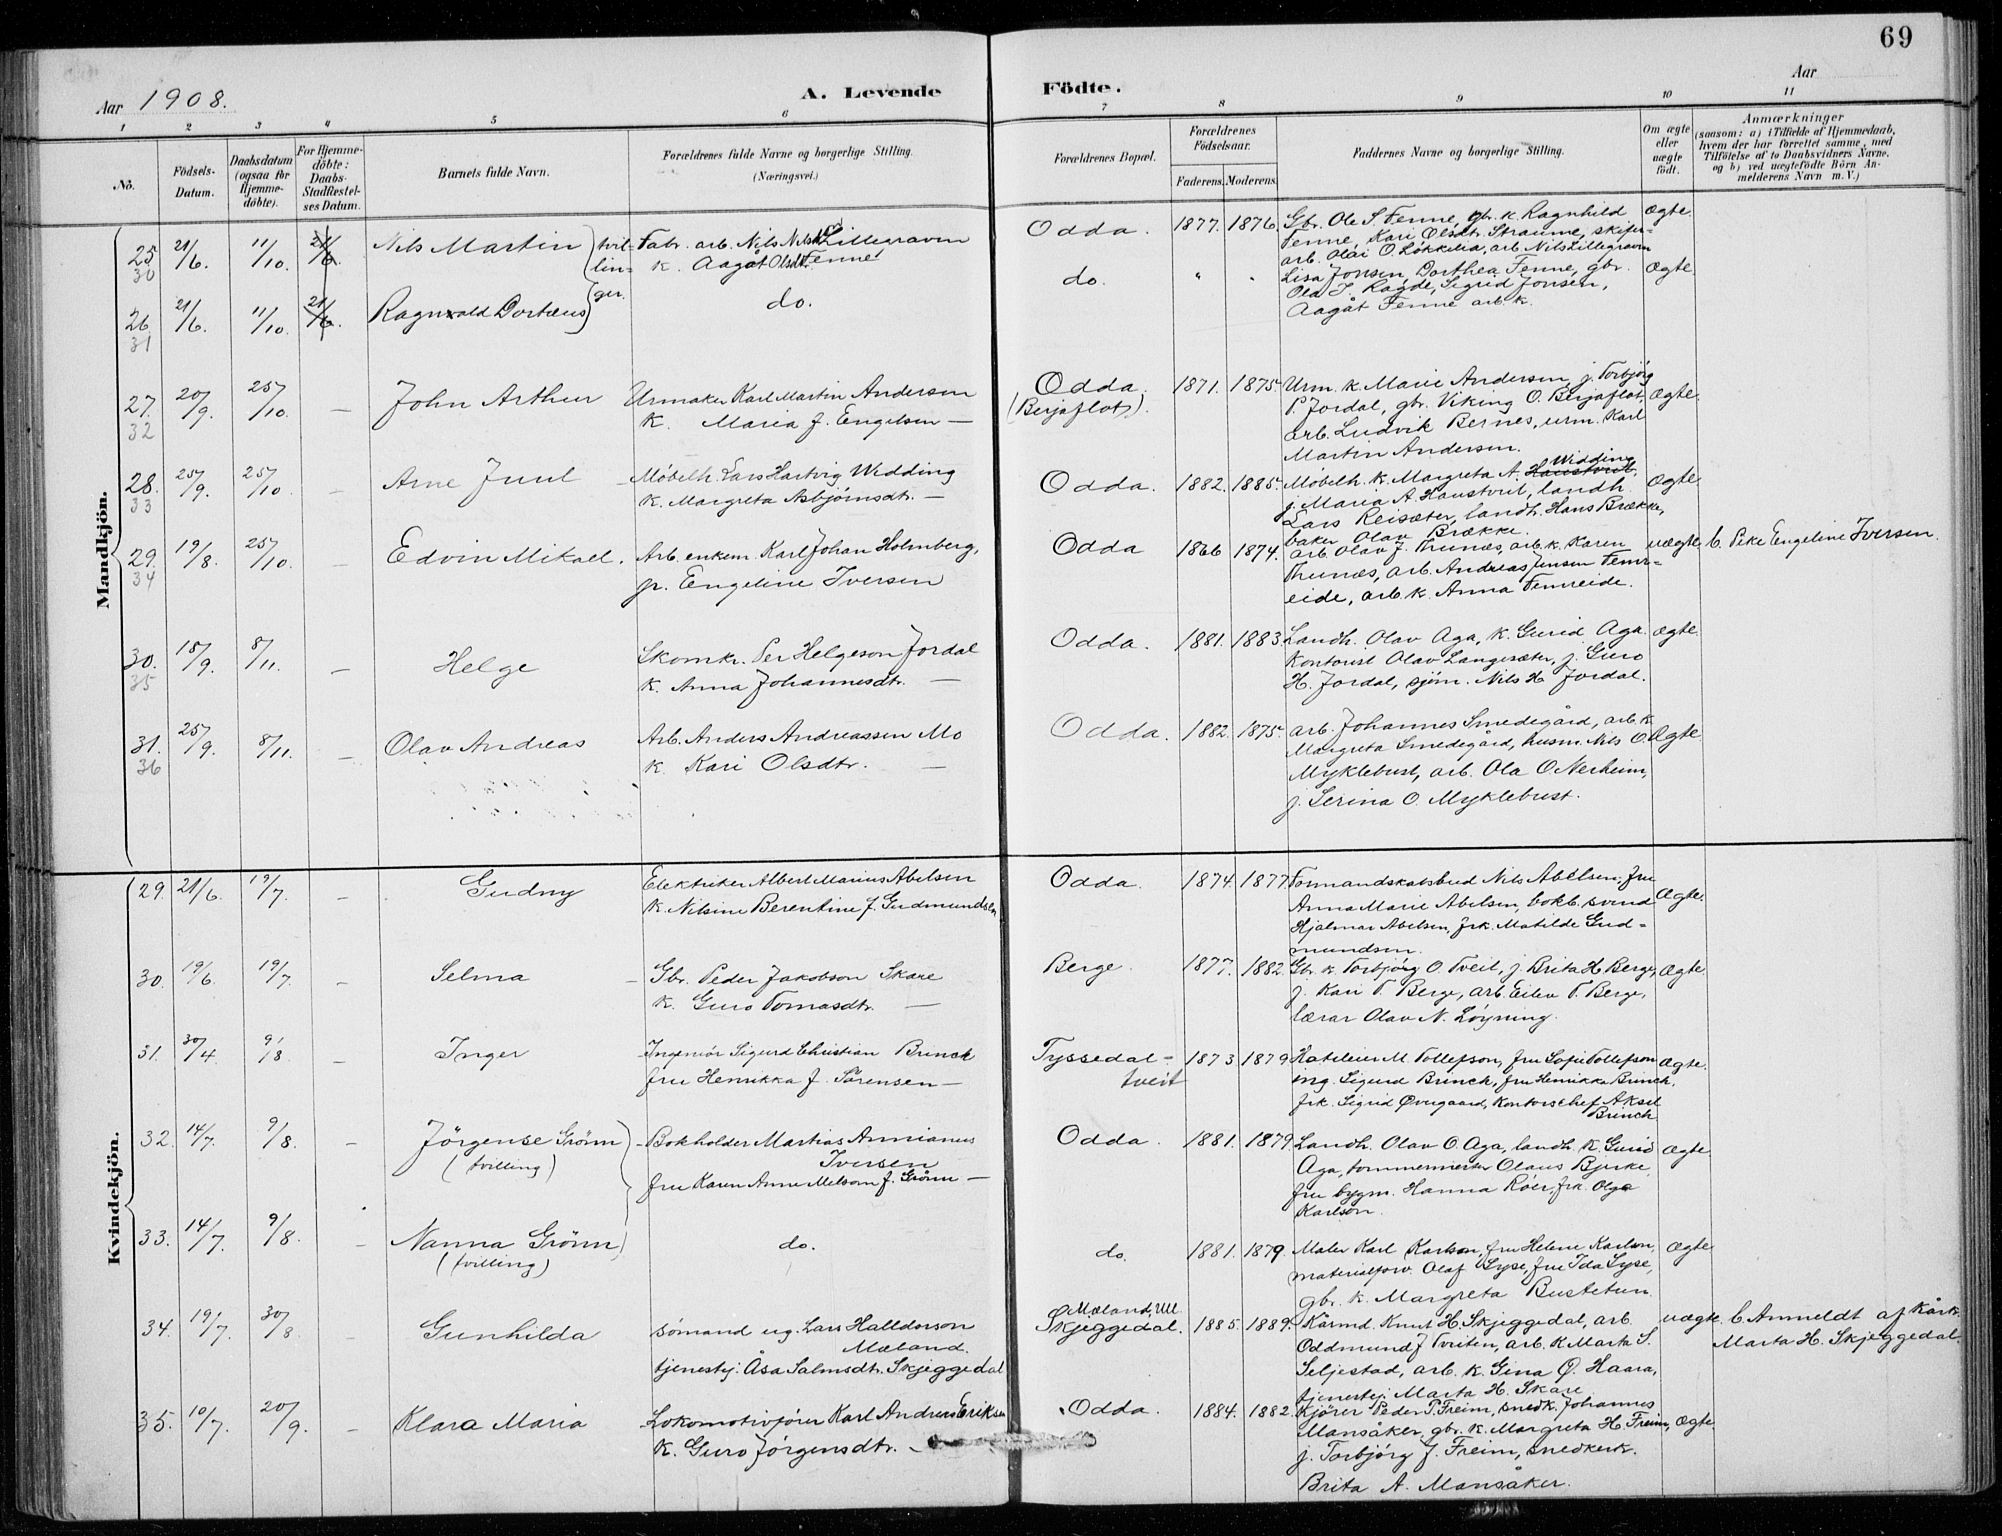 69
Aar 1908.
A. Levende
Födte.
Aar
1 2 3 4 5 6 7 8 9 10 11
No.
Födsels-Datum.
Daabsdatum (ogsaa for Hjemme-döbte).
For Hjemme-döbte: Daabs-Stadfæstel-ses Datum.
Barnets fulde Navn.
Forældrenes fulde Navne og borgerlige Stilling.
(Næringsvei.)
Forældrenes Bopæl.
Forældrenes Födselsaar.
Faderens. Moderens.
Faddernes Navne og borgerlige Stilling.
Om ægte eller uægte födt.
Anmærkninger
(saasom: a) i Tilfælde af Hjemmedaab,
hvem der har forrettet samme, med
Tilföielse af to Daabsvidners Navne,
og b) ved uægtefödte Börn An-
melderens Navn m. V.)
Mandkjön.
25 30 21/6. 11/10. 21/6 Nils Martin tvil-
Fabr. arb. Nils Nilss. Lillegraven
k. Aagåt Olsdtr. Fenne
Odda. 1877. 1876. Gbr. Ole S Fenne, gbr. k. Ragnhild
Fenne, Kari Olsdtr. Straume, skips-
arb. Olai O. Løkkelia, arb. Nils Lillegraven
Ægte.
26 31 21/6. 11/10. 21/6. Ragnvald Dortæus lin- ger.
do.
do. " " Lisa Jonsen, Dorthea Fenne, gbr.
Ola T. Ragde, Sigrid Jonsen,
Aagåt Fenne arb. k.
Ægte.
27. 32 20/9. 25/10. — John Arthur
Urmaker Karl Martin Andersen
k. Maria f. Engelsen —
Odda. (Berjaflot). 1871. 1875. Urm. k. Marie Andersen, j. Torbjørg
P. Jordal, gbr. Viking O. Berjaflot,
arb. Ludvik Bernes, urm. Karl
Martin Andersen.
Ægte.
28. 33 25/9. 25/10. — Arne Juul
Møbelh. Lars Hartvig Widding
k. Margreta Asbjørnsdt. —
Odda. 1882. 1885. Møbelh. k. Margreta A. Haustveit Widding,
j. Maria A. Haustveit, landh
Lars Reisæter, landh. Hans Brække,
baker Olav Brække.
Ægte.
29. 34 19/8. 25/10. — Edvin Mikael.
Arb. enkem. Karl Johan Holmberg,
p. Engeline Iversen
Odda 1866 1874. arb Olav J. Thunæs, arb. k. Karen
Thunæs, arb. Andreas Jensen Femr-
eide, arb. k. Anna Femreide.
uægte b. Pike Engeline Iversen.
30. 35 18/9. 8/11. — Helge
Skomkr. Per Helgeson Jordal
k. Anna Johannesdt. —
Odda. 1881. 1883. Landh. Olav Aga, k. Gurid Aga.
Kontorist Olav Langesæter, j. Guro
H. Jordal, sjøm. Nils H Jordal.
Ægte.
31. 36 25/9. 8/11. — Olav Andreas
Arb. Anders Andreassen Mo
k. Kari Olsdtr. —
Odda. 1882. 1875. arb. Johannes Smedegård, arb. k
Margreta Smedegård, husm. Nils O.
Myklebust, arb. Ola O Nerheim,
j. Serina O. Myklebust.
Ægte.
Kvindekjön.
29. 21/6. 19/7. — Gudny
Elektriker Albert Marius Abelsen
k. Nilsine Berentine f. Gudmundsen
Odda. 1874. 1877. Formandskabsbud Nils Abelsen, fru
Anna Marie Abelsen, bokb. svend
Hjalmar Abelsen, frk. Matilde Gud-
mundsen.
Ægte.
30. 19/6. 19/7. — Selma
Gbr. Peder Jakobson Skare
k. Guro Tomasdtr. —
Berge. 1877. 1882. Gbr. k Torbjørg O. Tveit, j. Brita H Berge,
j. Kari T. Berge, arb. Eilev T. Berge,
lærar Olav N. Løyning.
Ægte
31. 30/4. 9/8. — Inger
Ingeniør Sigurd Christian Brinch
fru Henrikka f. Sørensen —
Tyssedal-tveit 1873 1879 M. Tollefson, fru Sofie Tollefson
ing. Sigurd Brinch, fru Henrikka Brinch.
frk. Sigrid Øvergaard, Kontorschef Aksel
Brinch
Ægte.
32. 14/7. 9/8. — Jörgense Grönn (tvilling)
Bokholder Martias Annianus
Iversen
fru Karen Anne Melsom f. Grönn —
Odda. 1881. 1879. Landh. Olav O. Aga, landh. k. Gurid
Aga, tømmermester Olaus Bjerke
fru bygm. Hanna Röer, frk. Olga
Karlson.
Ægte
33. 14/7. 9/8. — Nanna Grönn (tvilling)
do.
do. 1881. 1879. Maler Karl Karlson, fru Helene Karlson,
materialforv. Olaf Syse, fru Ida Syse,
gbr. k. Margreta Bustetun
Ægte
34. 19/7. 30/8. Gunhilda
sømand ug. Lars Halldorson
Mæland.
tjenestej: Åsa Salmsdt. Skjeggedal
Mæland, Ull.
Skjeggedal. 1885. 1889. Kårmd. Knut H. Skjeggedal, arb.
Oddmund J Tveiten, arb. k Marta S.
Seljestad, arb. k. Gina Ø. Haara,
tjenestej. Marta H. Skare
uægte. b Anmeldt af Kårk.
Marta H. Skjeggedal.
35. 10/7. 20/9. — Klara Maria
Lokomotivfører Karl Andreas Eriksen
k. Guro Jørgensdtr. —
Odda. 1884. 1882. Kjører Peder P. Freim, snedk. Johannes
Mansåker, gbr. k. Margreta H. Freim,
j. Torbjørg J. Freim, snedkerk.
Brita A. Mansåker.
Ægte.